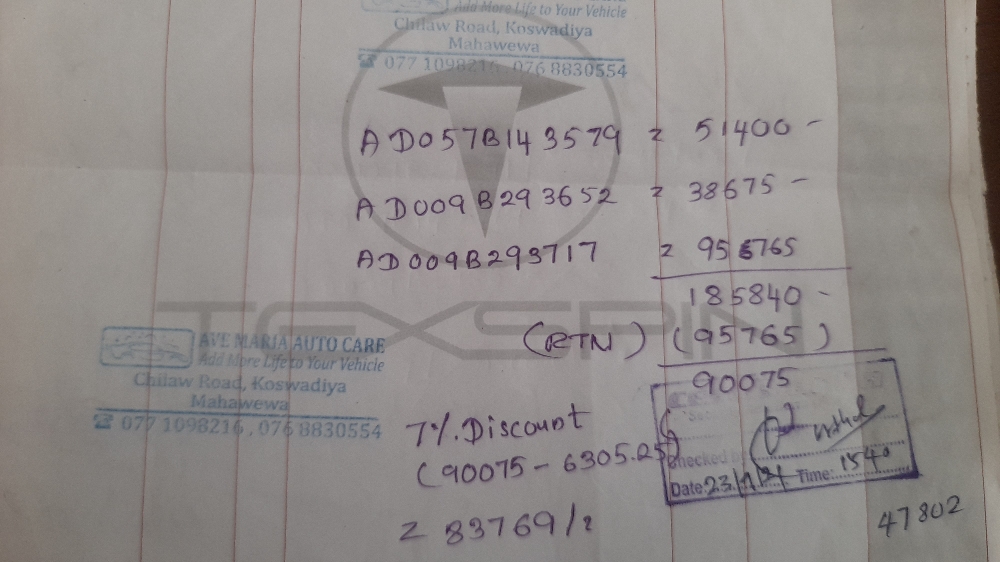 Add More Life to Your Vehicle
Chilaw Road, Koswadiya
Mahawewa
☎ 077 1098216, 076 8830554
AD057B143579 = 51400 -
AD009B293652 = 38675 -
AD009B293717 = 95765
185840 -
TEXSPIN
(RTN) (95765)
90075
AVE MARIA AUTO CARE
Add More Life to Your Vehicle
Chilaw Road, Koswadiya
Mahawewa
☎ 077 1098216, 076 8830554
7%. Discount
(90075 - 6305.25)
= 83769/=
Checked
Date: Time: 1540
47802